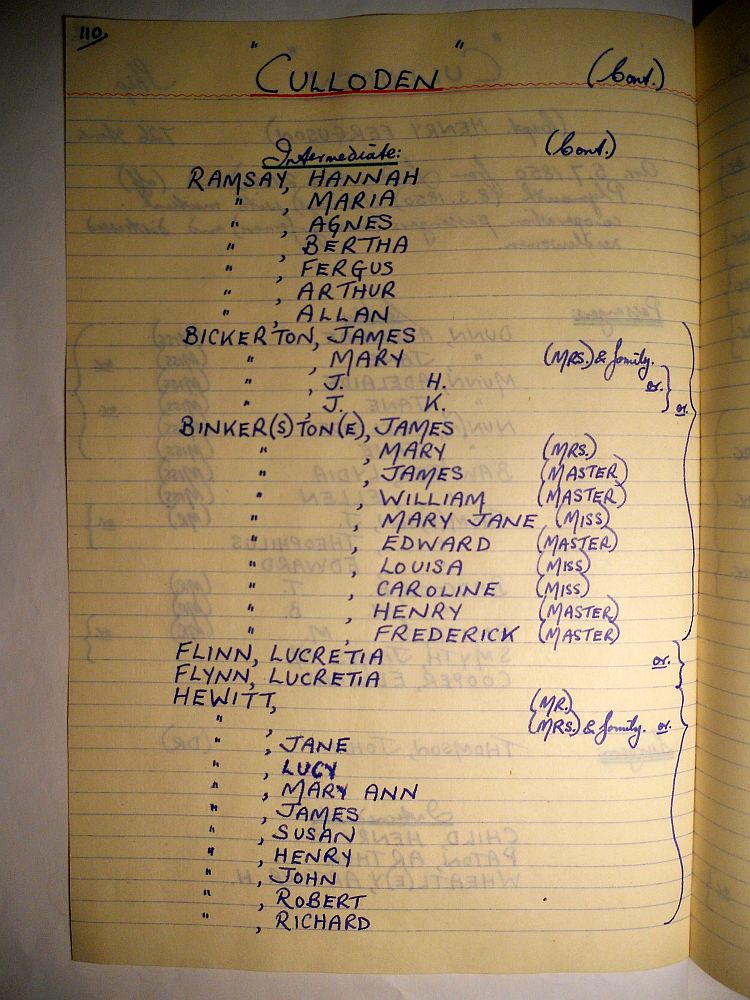 110.
"CULLODEN" (Cont.)
Intermediate: (Cont.)
RAMSAY, HANNAH
" , MARIA
" , AGNES
" , BERTHA
" , FERGUS
" , ARTHUR
" , ALLAN
BICKERTON, JAMES
" , MARY (MRS.) & family.
" , J. H. or.
" , J. K. or.
BINKER(S)TON(E), JAMES
" , MARY (MRS.)
" , JAMES (MASTER)
" , WILLIAM (MASTER)
" , MARY JANE (MISS)
" , EDWARD (MASTER)
" , LOUISA (MISS)
" , CAROLINE (MISS)
" , HENRY (MASTER)
" , FREDERICK (MASTER)
FLINN, LUCRETIA or.
FLYNN, LUCRETIA
HEWITT, (MR.)
" , (MRS.) & family. or.
" , JANE
" , LUCY
" , MARY ANN
" , JAMES
" , SUSAN
" , HENRY
" , JOHN
" , ROBERT
" , RICHARD